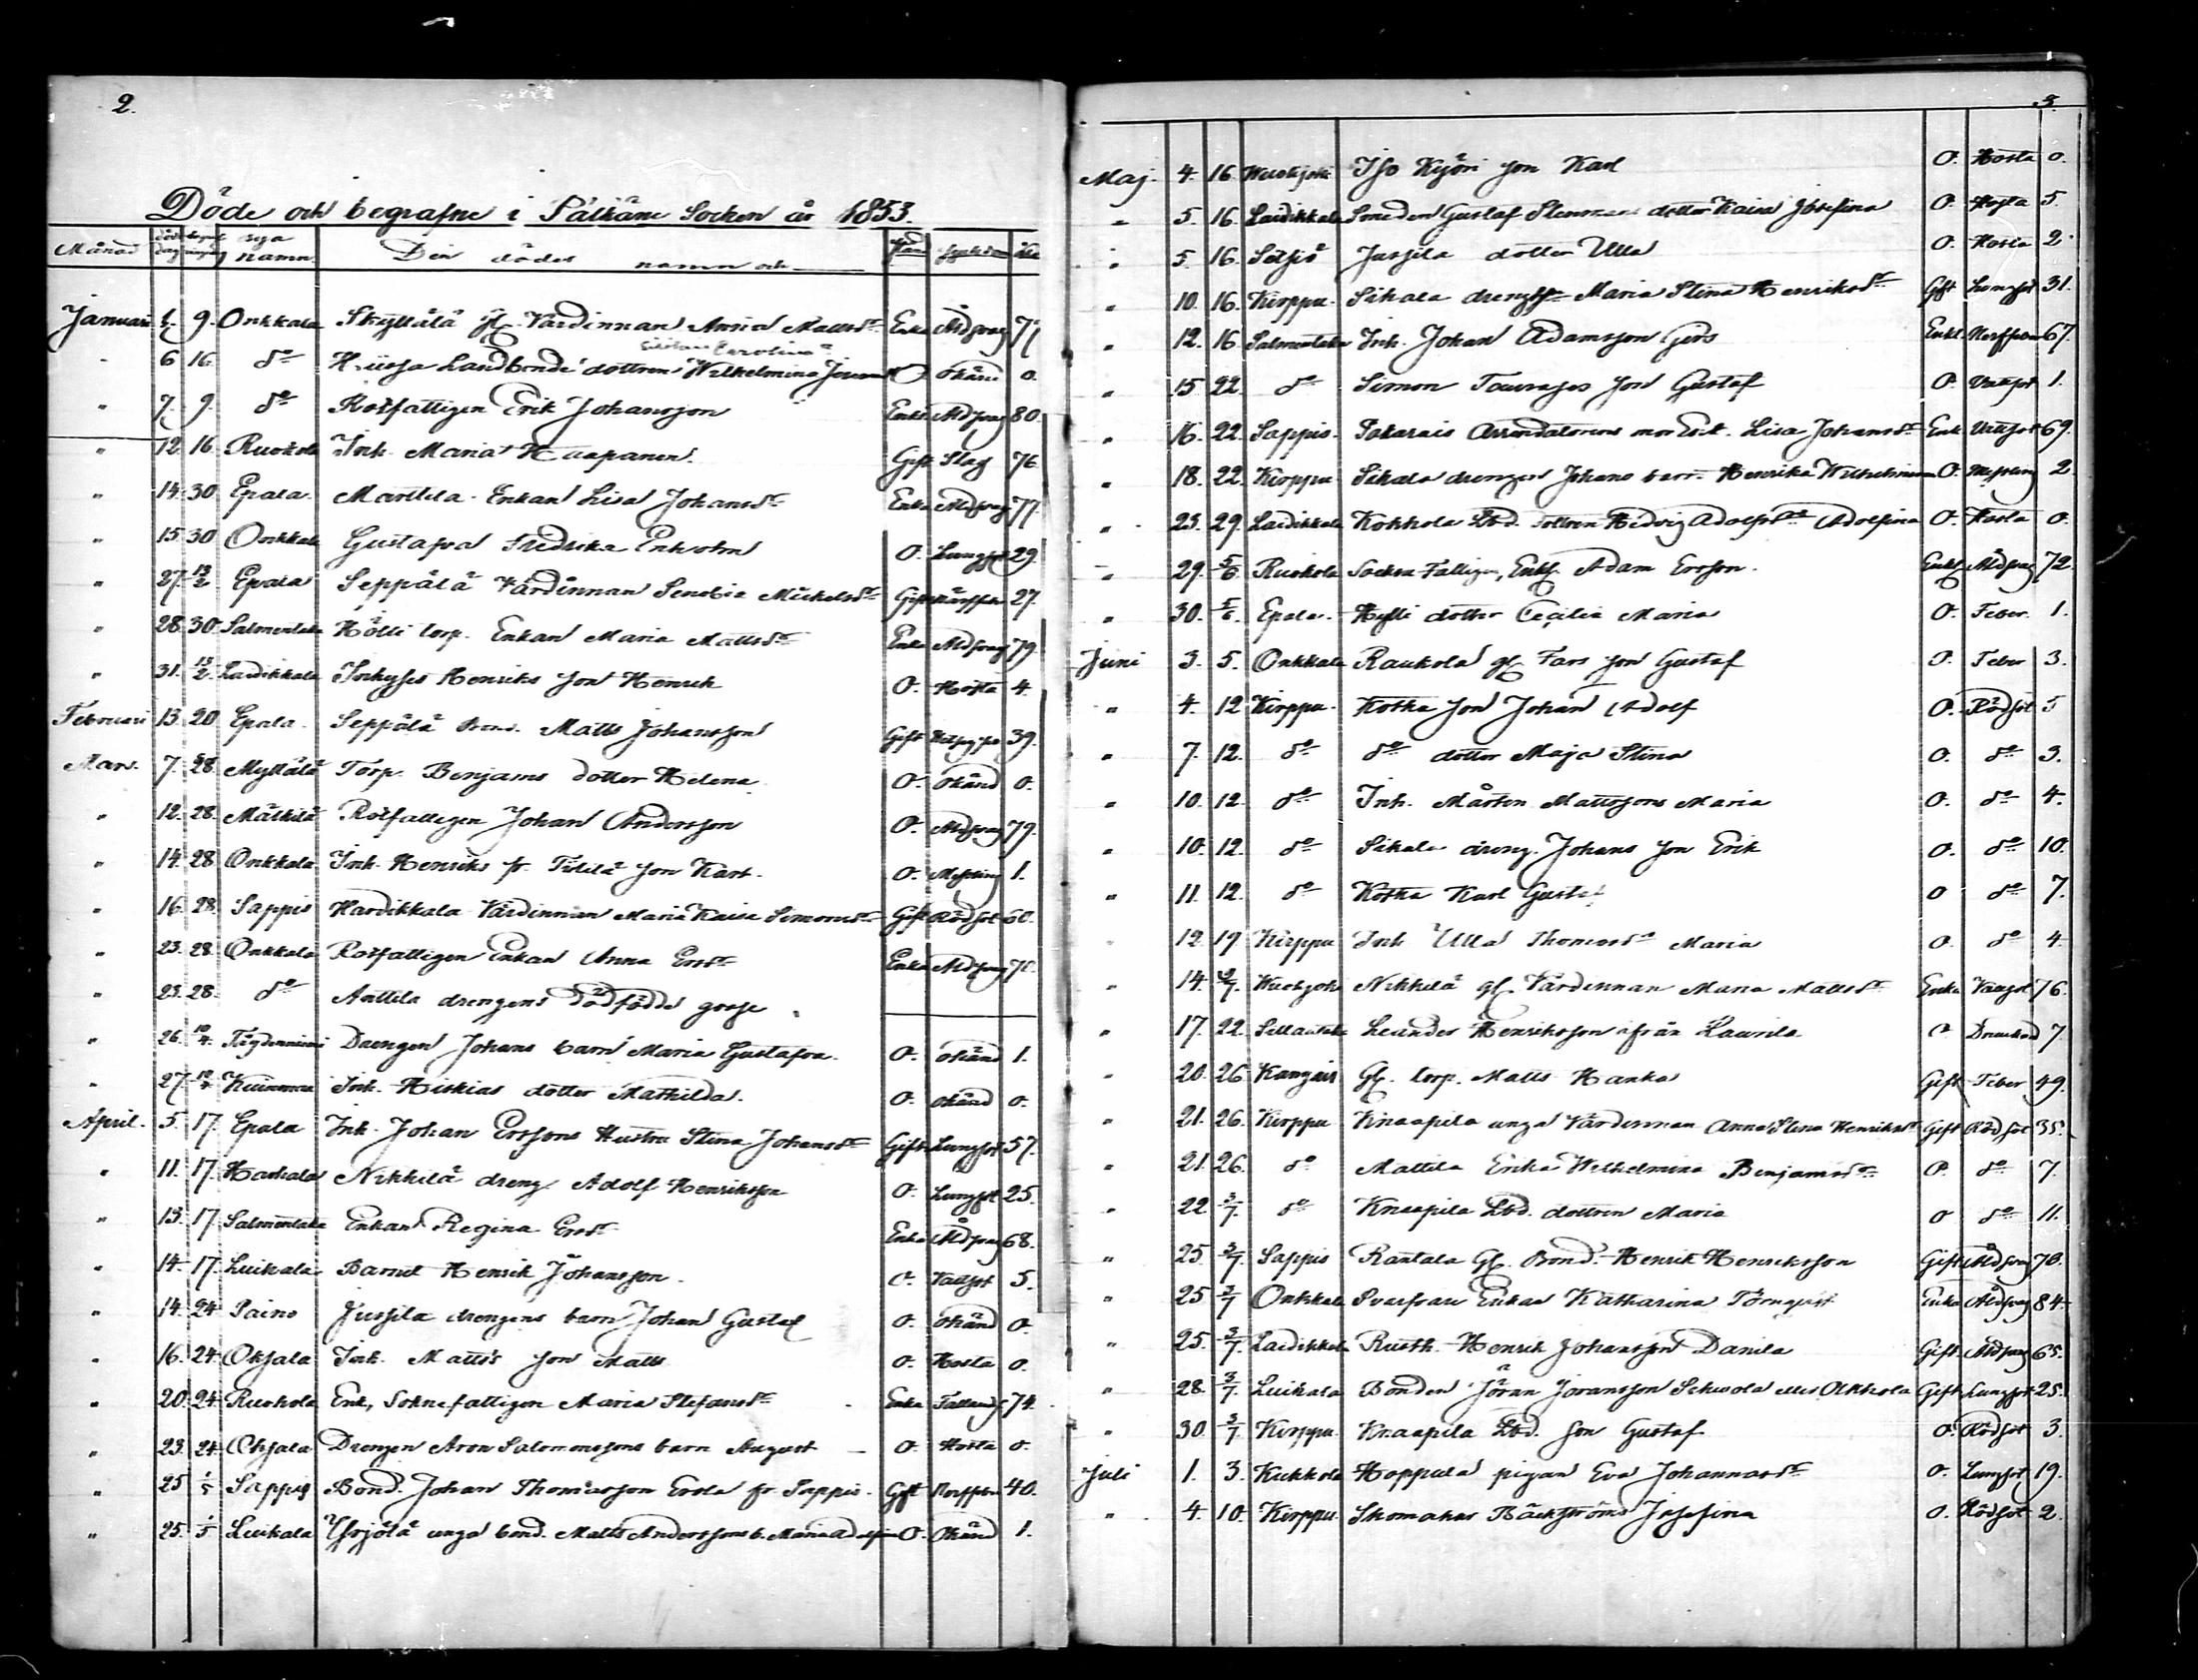 2.
Döde och begrafne i Pälkäne Socken år 1853.
Månad dödsdag begr. bya namn Den dödes namn och stånd sjukdom ålder
Januari 1. 9. Onkkala Skyttälä gl. Värdinnan Anna Mattsdr Enka Åldrsvag 71
Carolina
" 6 16. do Hiirsja Landbonde dottren Wilhelmina O. Okänd 0.
" 7. 9. do Rotfattigen Erik Johansson Enkl. Åldrsvag 80.
" 12. 16. Ruokola Inh. Maria Haapanen. Gift Slag 76
" 14. 30. Epala. Marttila Enkan Lisa Johansdr Enka Åldrsvag 77.
" 15. 30 Onkkala Gustafva Fredrika Enholm O. Lungsot 29.
" 27. 13/2 Epala Seppälä Värdinnan Senobia Mickelsdr Gift 27.
" 28. 30. Salmentaka Hölli torp. Enkan Maria Mattsdr Enka Åldrsvag 79.
" 31. 13/2. Laidikkala Henriks son Henrik O. Hosta 4.
Februari 13. 20 Epala. Seppälä Bond. Matts Johansson Gift 39.
Mars. 7. 28. Myttälä Torp. Benjams dotter Helena O. Okänd 0.
" 12. 28. Mälkilä Rotfattigen Johan Andersson O. Åldrsvag 79.
" 14. 28 Onkkala Inh. Henriks fr. Tililä son Karl. O. Messling 1.
" 16. 28. Sappis Hardikkala Värdinnan Maria Kaisa Simonsdr Gift Rödsot 60.
" 23. 28. Onkkala Rotfattigen Enkan Anna Ersdr Enka Åldrsvag
" 23. 28. do Anttila drengens dödfödde gosse
" 26. 10/4. Tägdenniemi Drengen Johans barn Maria Gustafva. O. Okänd 1.
" 27. 10/4 Kuisema Inh. Hiskias dotter Mathilda. O. Okänd 0.
April. 5. 17. Epala Inh. Johan Erssons Hustru Stina Johansdr Gift Lungsot 57.
" 11. 17. Harhala Nikkilä dreng Adolf Henriksson O. Lungsot 25.
" 13. 17. Salmentaka Enkan Regina Ersdr Enka Åldrsvag 68.
" 14. 17. Luikala Barnet Henrik Johansson. O. Vattsot 5.
" 14. 24 Paino Jussila drengens barn Johan Gustaf O. Okänd 0.
" 16. 24. Ohjala Inh. Matts's son Matts O. Hosta 0.
" 20. 24. Ruokola Enk. Soknefattigen Maria Stefansdr Enka Fallands. 74.
" 23. 24. Ohjala Drengen Aron Salomonssons barn August O. Hosta 0.
" 25 1/5 Sappis Bond. Johan Thomasson Erola fr. Sappis. Gift Nerffeber 40.
" 25. 1/5 Luikala Yrjölä unga bond. Matts Anderssons b. Maria Adolfina O. Okänd 1.
3.
Maj. 4. 16. Iso Kyöri son Karl O. Hosta 0.
" 5. 16. Laidikkala Smeden Gustaf Stenmans dotter Kaisa Josefina O. Hosta 5.
" 5. 16. Seitsis Jussila dotter Ulla O. Hosta 2.
" 10. 16. Kirppu. Sikala Maria Stina Henriksdr Gift Lungsot 31.
" 12. 16. Salmentaka Inh. Johan Adamsson Girs Enkl. Nerffeber 67.
" 15 22. do Simon Tavasjos son Gustaf O. Vattsot 1.
" 16. 22. Sappis. Pakarais Arrendatorens mor Enk. Lisa Johansdr Enk. Vattsot 69.
" 18. 22. Kirppu Sikala drengen Johans barn Henrika Wilhelmina O. Messling 2.
" 23. 29. Laidikkala Kokkola Lbd. dottren Hedvig Adolfsdr Adolfina O. Hosta 0.
" 29. 5/6. Ruokola Socken Fattigen, Enkl. Adam Ersson. Enkl. Åldrsvag 72.
" 30. 5/6. Epala. Hylli dotter Cecilia Maria O. Feber. 1.
Juni 3. 5. Onkkala Raukola gl. Fars son Gustaf O. Feber 3.
" 4. 12 Kirppu. Kotka son Johan Adolf O. Rödsot 5
" 7. 12. do do dotter Maja Stina O. do 3.
" 10. 12. do Inh. Mårten Mattssons Maria O. do 4.
" 10. 12. do Sikala dreng. Johans son Erik O. do 10.
" 11. 12. do Kotka Karl Gustaf O do 7.
" 12 19. Kirppu Inh Ulla Thomasdr Maria O. do 4.
" 14. Kuotjoki Nikkilä gl. Värdinnan Maria Mattsdr Enka Vattsot 76.
" 17. 22. Leander Henriksson ifrån Laurila O Drunknad 7.
" 20. 26. Kangais Gl. torp. Matts Hanka Gift Feber 49.
" 21. 26. Kirppu Knaapila unga Värdinnan Anna Stina Henriksdr Gift Rödsot 35.
" 21. 26. do Mattila Erika Wilhelmina Benjamsdr O. do 7.
" 22 3/7. do Knaapila Lbd. dottren Maria O do 11.
" 25 3/7. Sappis Rantala Gl. Bond. Henrik Henriksson Gift Åldrsvag 70.
" 25 3/7 Onkkala Enkan Katharina Törnqvist Enka Åldrsvag 84
" 25. 3/7. Laidikkala Rusth. Henrik Johansson Danila Gift Åldrsvag 65.
" 28. 3/7. Luikala Bonden Jöran Joransson Sekvola eller Olkkola Gift Lungsot 25.
" 30. 3/7 Kirppu. Knaapila Lbd. son Gustaf O. Rödsot 3.
Juli 1. 3. Kukkola Hoppula pigan Eva Johannasdr O. Lungsot 19.
" 4. 10. Kirppu Skomakar Bäckströms Josefina O. Rödsot 2.